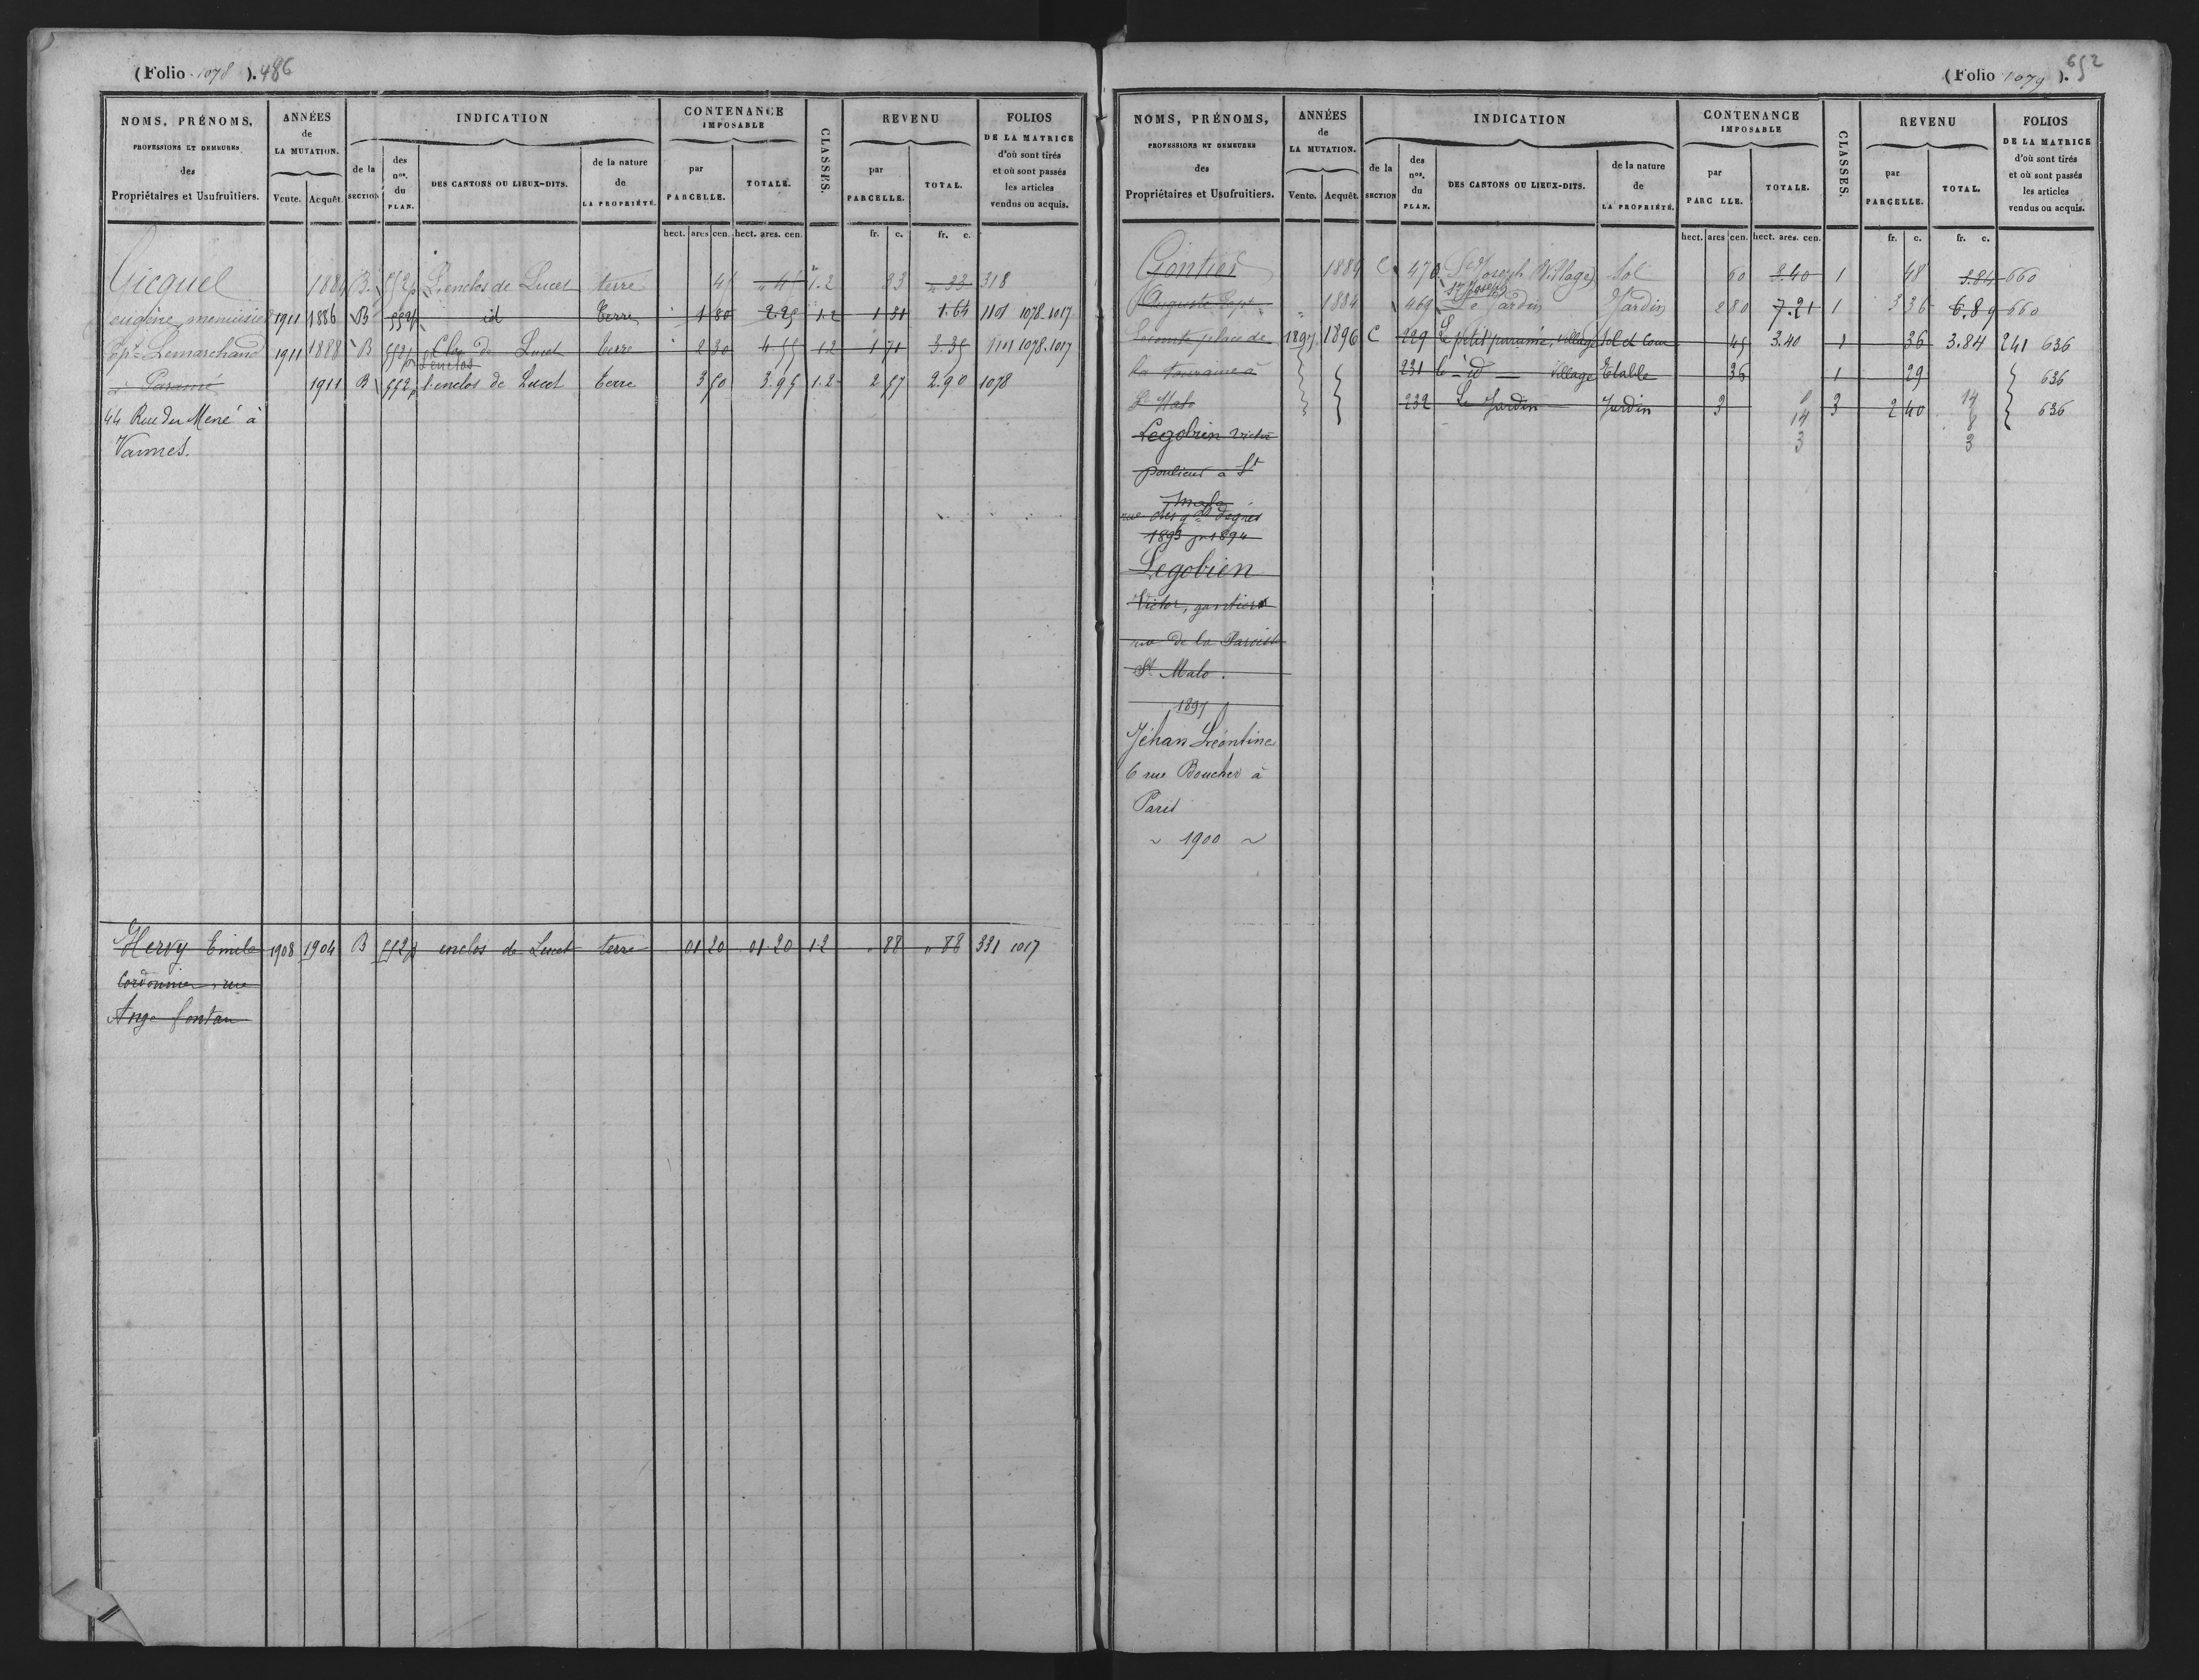 (Folio 1078). 486
NOMS, PRÉNOMS, PROFESSIONS ET DEMEURES des Propriétaires et Usufruitiers.
ANNÉES de LA MUTATION. Vente. Acquêt.
INDICATION
de la SECTION
des nos. du PLAN.
DES CANTONS OU LIEUX-DITS.
de la nature de LA PROPRIÉTÉ.
CONTENANCE IMPOSABLE
par PARCELLE. TOTALE.
CLASSES.
REVENU
par PARCELLE. TOTAL.
FOLIOS DE LA MATRICE d'où sont tirés et où sont passés les articles vendus ou acquis.
hect. ares cen. hect. ares. cen. fr. c. fr. c.
Gicquel 1884 B 552p L'enclos de Lucet terre 45 " 45 1.2 33 " 33 318
eugène, menuisier 1911 1886 B 552p id Terre 1 80 2.25 1.2 1 31 1.64 1101 1078.1017
Ept Lemarchand 1911 1888 B 552p de Lucet terre 2 30 4 55 1.2 1 71 3.35 1101 1078.1017
l'enclos
à Paramé 1911 B 552p l'enclos de Lucet terre 3 50 3.95 1.2 2 57 2.90 1078
44 Rue du Mené à
Vannes.
Hervy Emile 1908 1904 B 552p enclos de Lucet terre 01 20 01 20 1.2 " 88 " 88 331 1017
Cordonnier, rue
Ange fontan
(Folio 1079). 652
NOMS, PRÉNOMS, PROFESSIONS ET DEMEURES des Propriétaires et Usufruitiers.
ANNÉES de LA MUTATION. Vente. Acquêt.
INDICATION
de la SECTION
des nos. du PLAN.
DES CANTONS OU LIEUX-DITS.
de la nature de LA PROPRIÉTÉ.
CONTENANCE IMPOSABLE
par PARC LLE. TOTALE.
CLASSES.
REVENU
par PARCELLE. TOTAL.
FOLIOS DE LA MATRICE d'où sont tirés et où sont passés les articles vendus ou acquis.
hect. ares cen. hect. ares. cen. fr. c. fr. c.
Gontier 1884 C 470 St Joseph (Village) Sol 60 3.40 1 48 3.84 660
St Joseph
Auguste Sept " 1884 469 Le Jardin Jardin 2 80 7.21 1 3 36 6.89 660
Lecomte place de 1897 1896 C 229 Le petit paramé, village Sol et Cour 45 3.40 1 36 3.84 241 636
la Touraine à 231 le id village Etable 36 1 29 636
St Malo 232 Le Jardin Jardin 3 3 2 40 636
14 14
3 8
3
Legobien Victor
poulieur à St
Malo
rue des degrés
1893 pr 1894
Legobien
Victor,
rue de la Paroisse
St Malo.
1895
Jéhan Léontine
6 rue Boucher à
Paris
~ 1900 ~